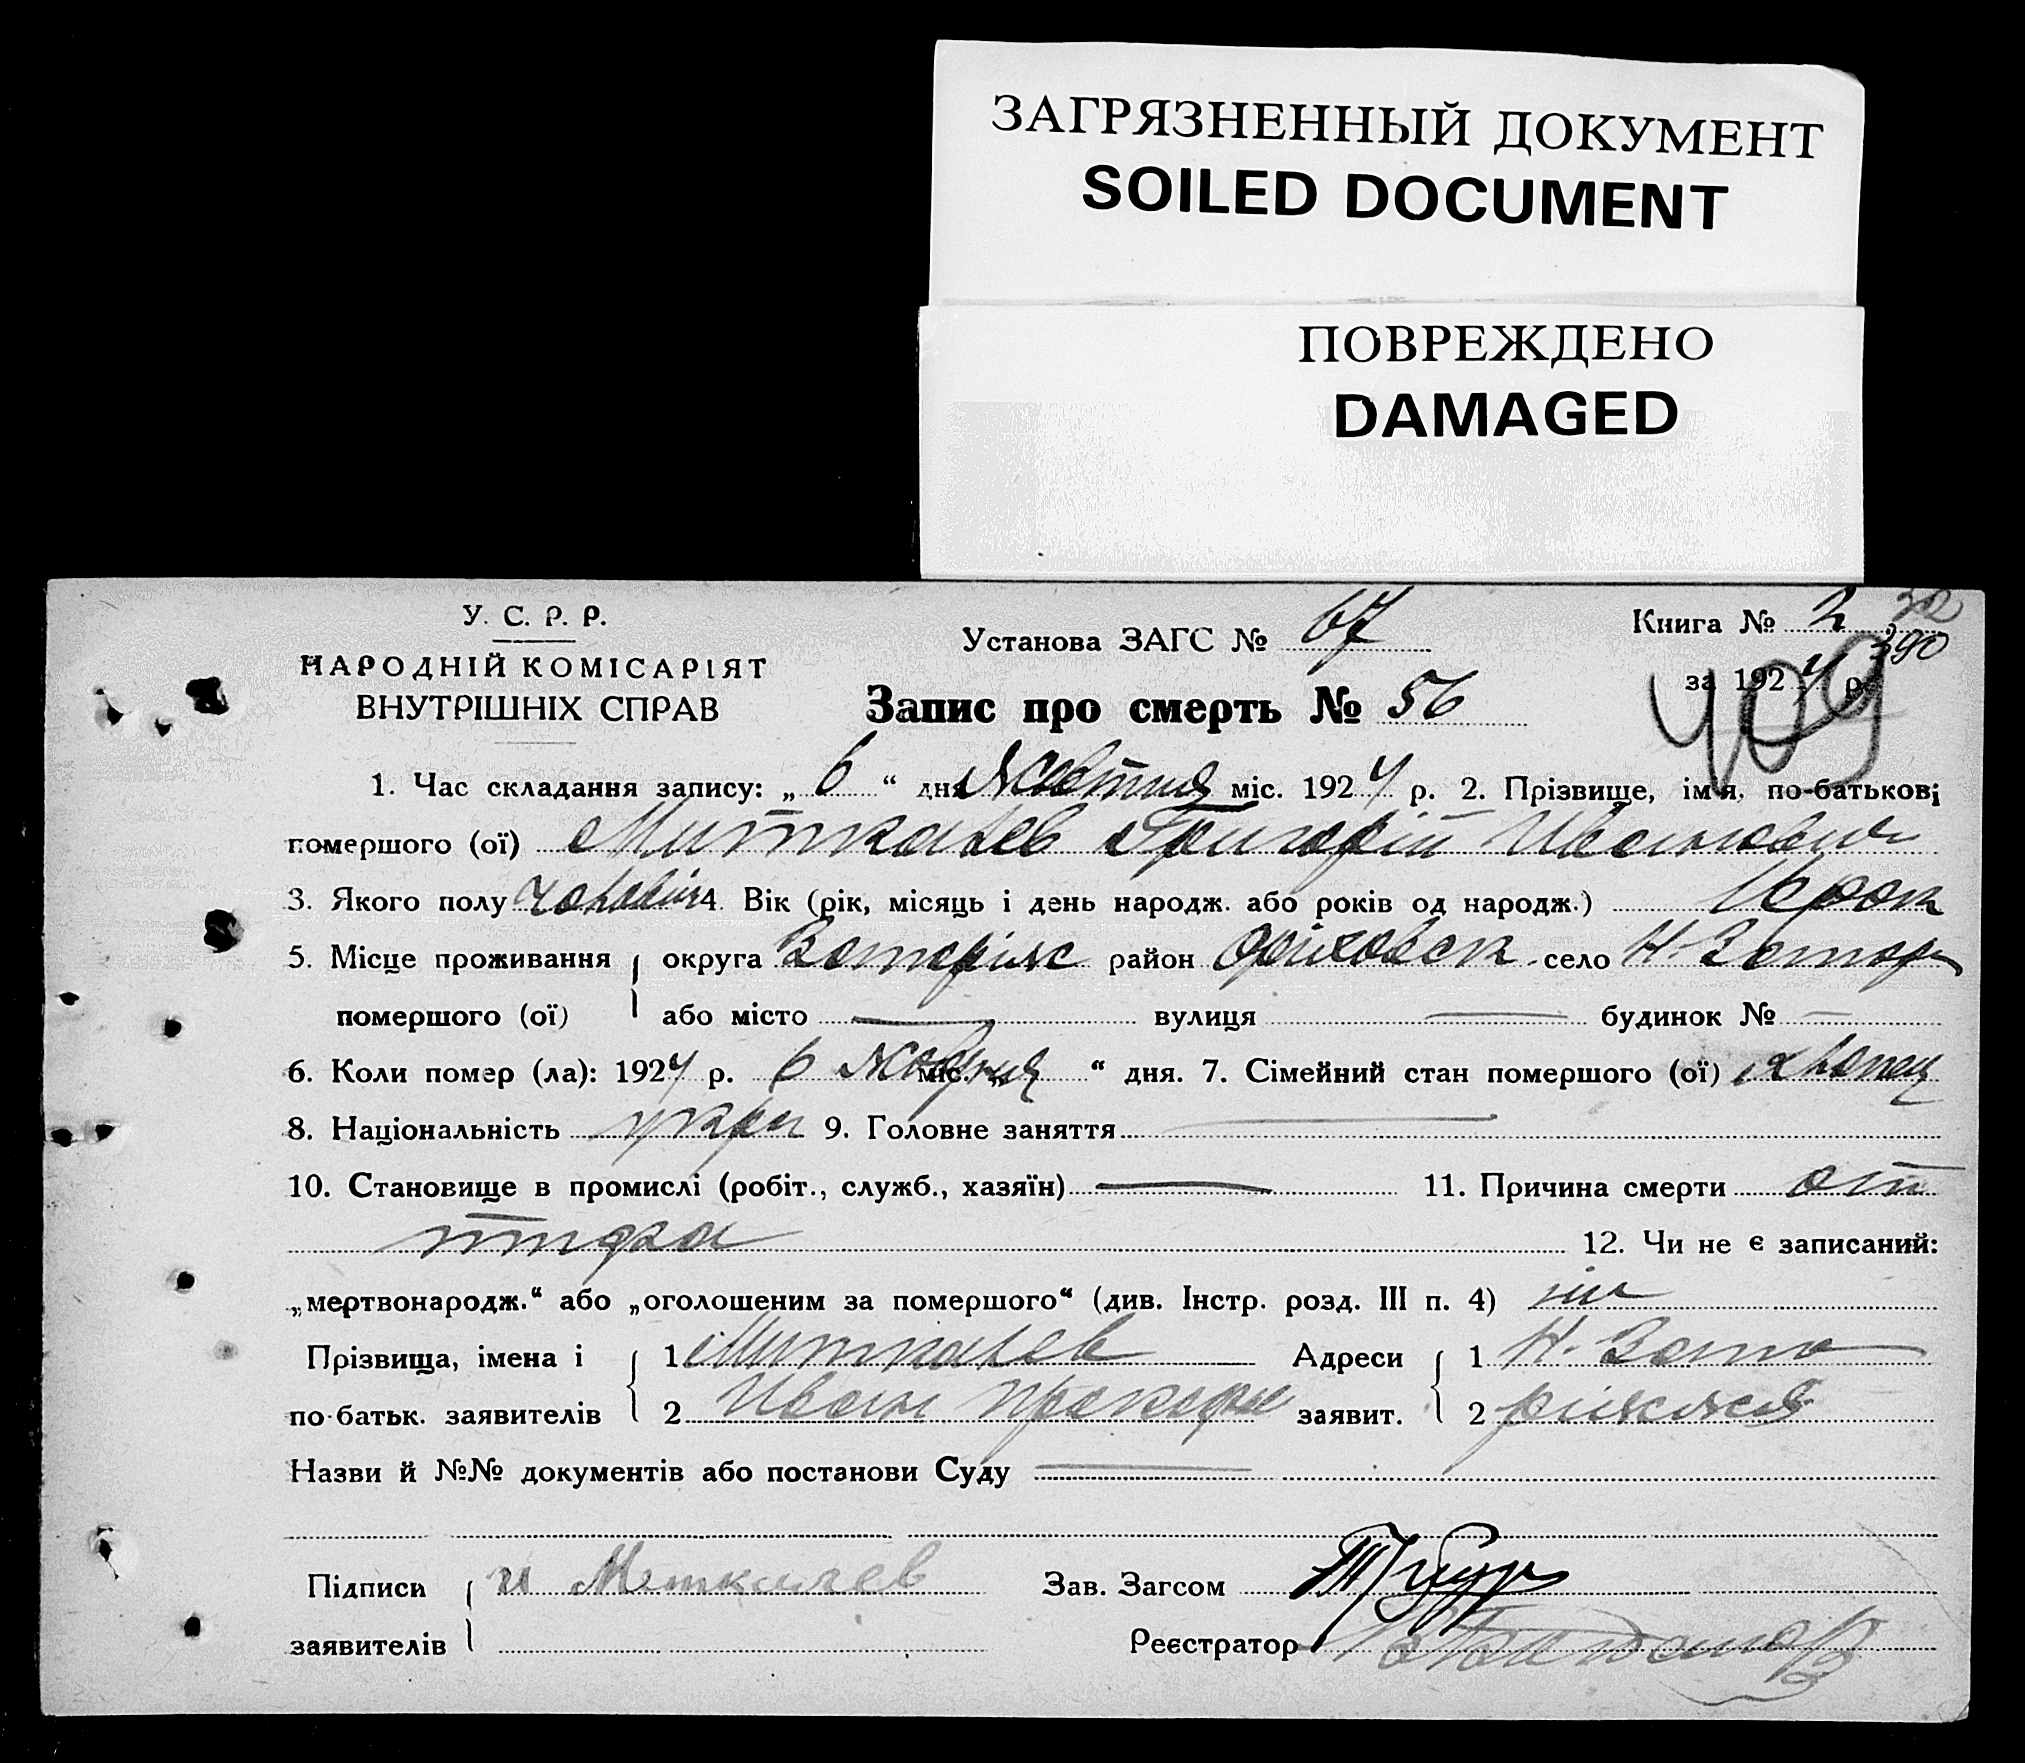 ЗАГРЯЗНЕННЫЙ ДОКУМЕНТ
SOILED DOCUMENT
ПОВРЕЖДЕНО
DAMAGED
У. С. Р. Р.
НАРОДНІЙ КОМІСАРІЯТ
ВНУТРІШНІХ СПРАВ
Установа ЗАГС № 67
Книга № 2
за 1924 р.
409
Запис про смерть № 56
1. Час складання запису: „ 6 “ дня Жовтня міс. 1924 р. 2. Прізвище, ім'я, по-батькові
помершого (ої) Миткалев Григорій Иванович
3. Якого полу чоловіч 4. Вік (рік, місяць і день народж. або років од народж.) рок
5. Місце проживання округа Запоріжс район Оріховск село Н. Запор
помершого (ої) або місто — вулиця — будинок № —
6. Коли помер (ла): 1924 р. 6 Жовтня міс. „ “ дня. 7. Сімейний стан помершого (ої) хлопец
8. Національність укра 9. Головне заняття —
10. Становище в промислі (робіт., служб., хазяїн) — 11. Причина смерти от
тифа 12. Чи не є записаний:
„мертвонародж.“ або „оголошеним за помершого“ (див. Інстр. розд. III п. 4) ни
Прізвища, імена і 1 Миткалев Адреси 1 Н. Запо
по-батьк. заявителів 2 Иван Прокофи заявит. 2 ріжжя
Назви й №№ документів або постанови Суду —
Підписи и Меткалев Зав. Загсом
заявителів Реєстратор